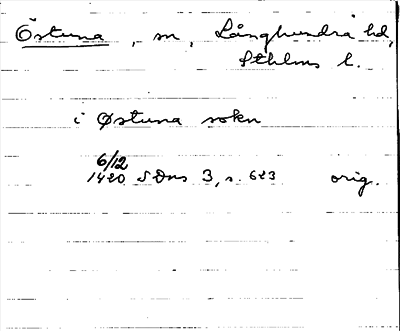 Östuna, sn, Långhundra hd,
Sthlms l.
i Østuna sokn
6/12
1420 SDns 3, s. 623 orig.